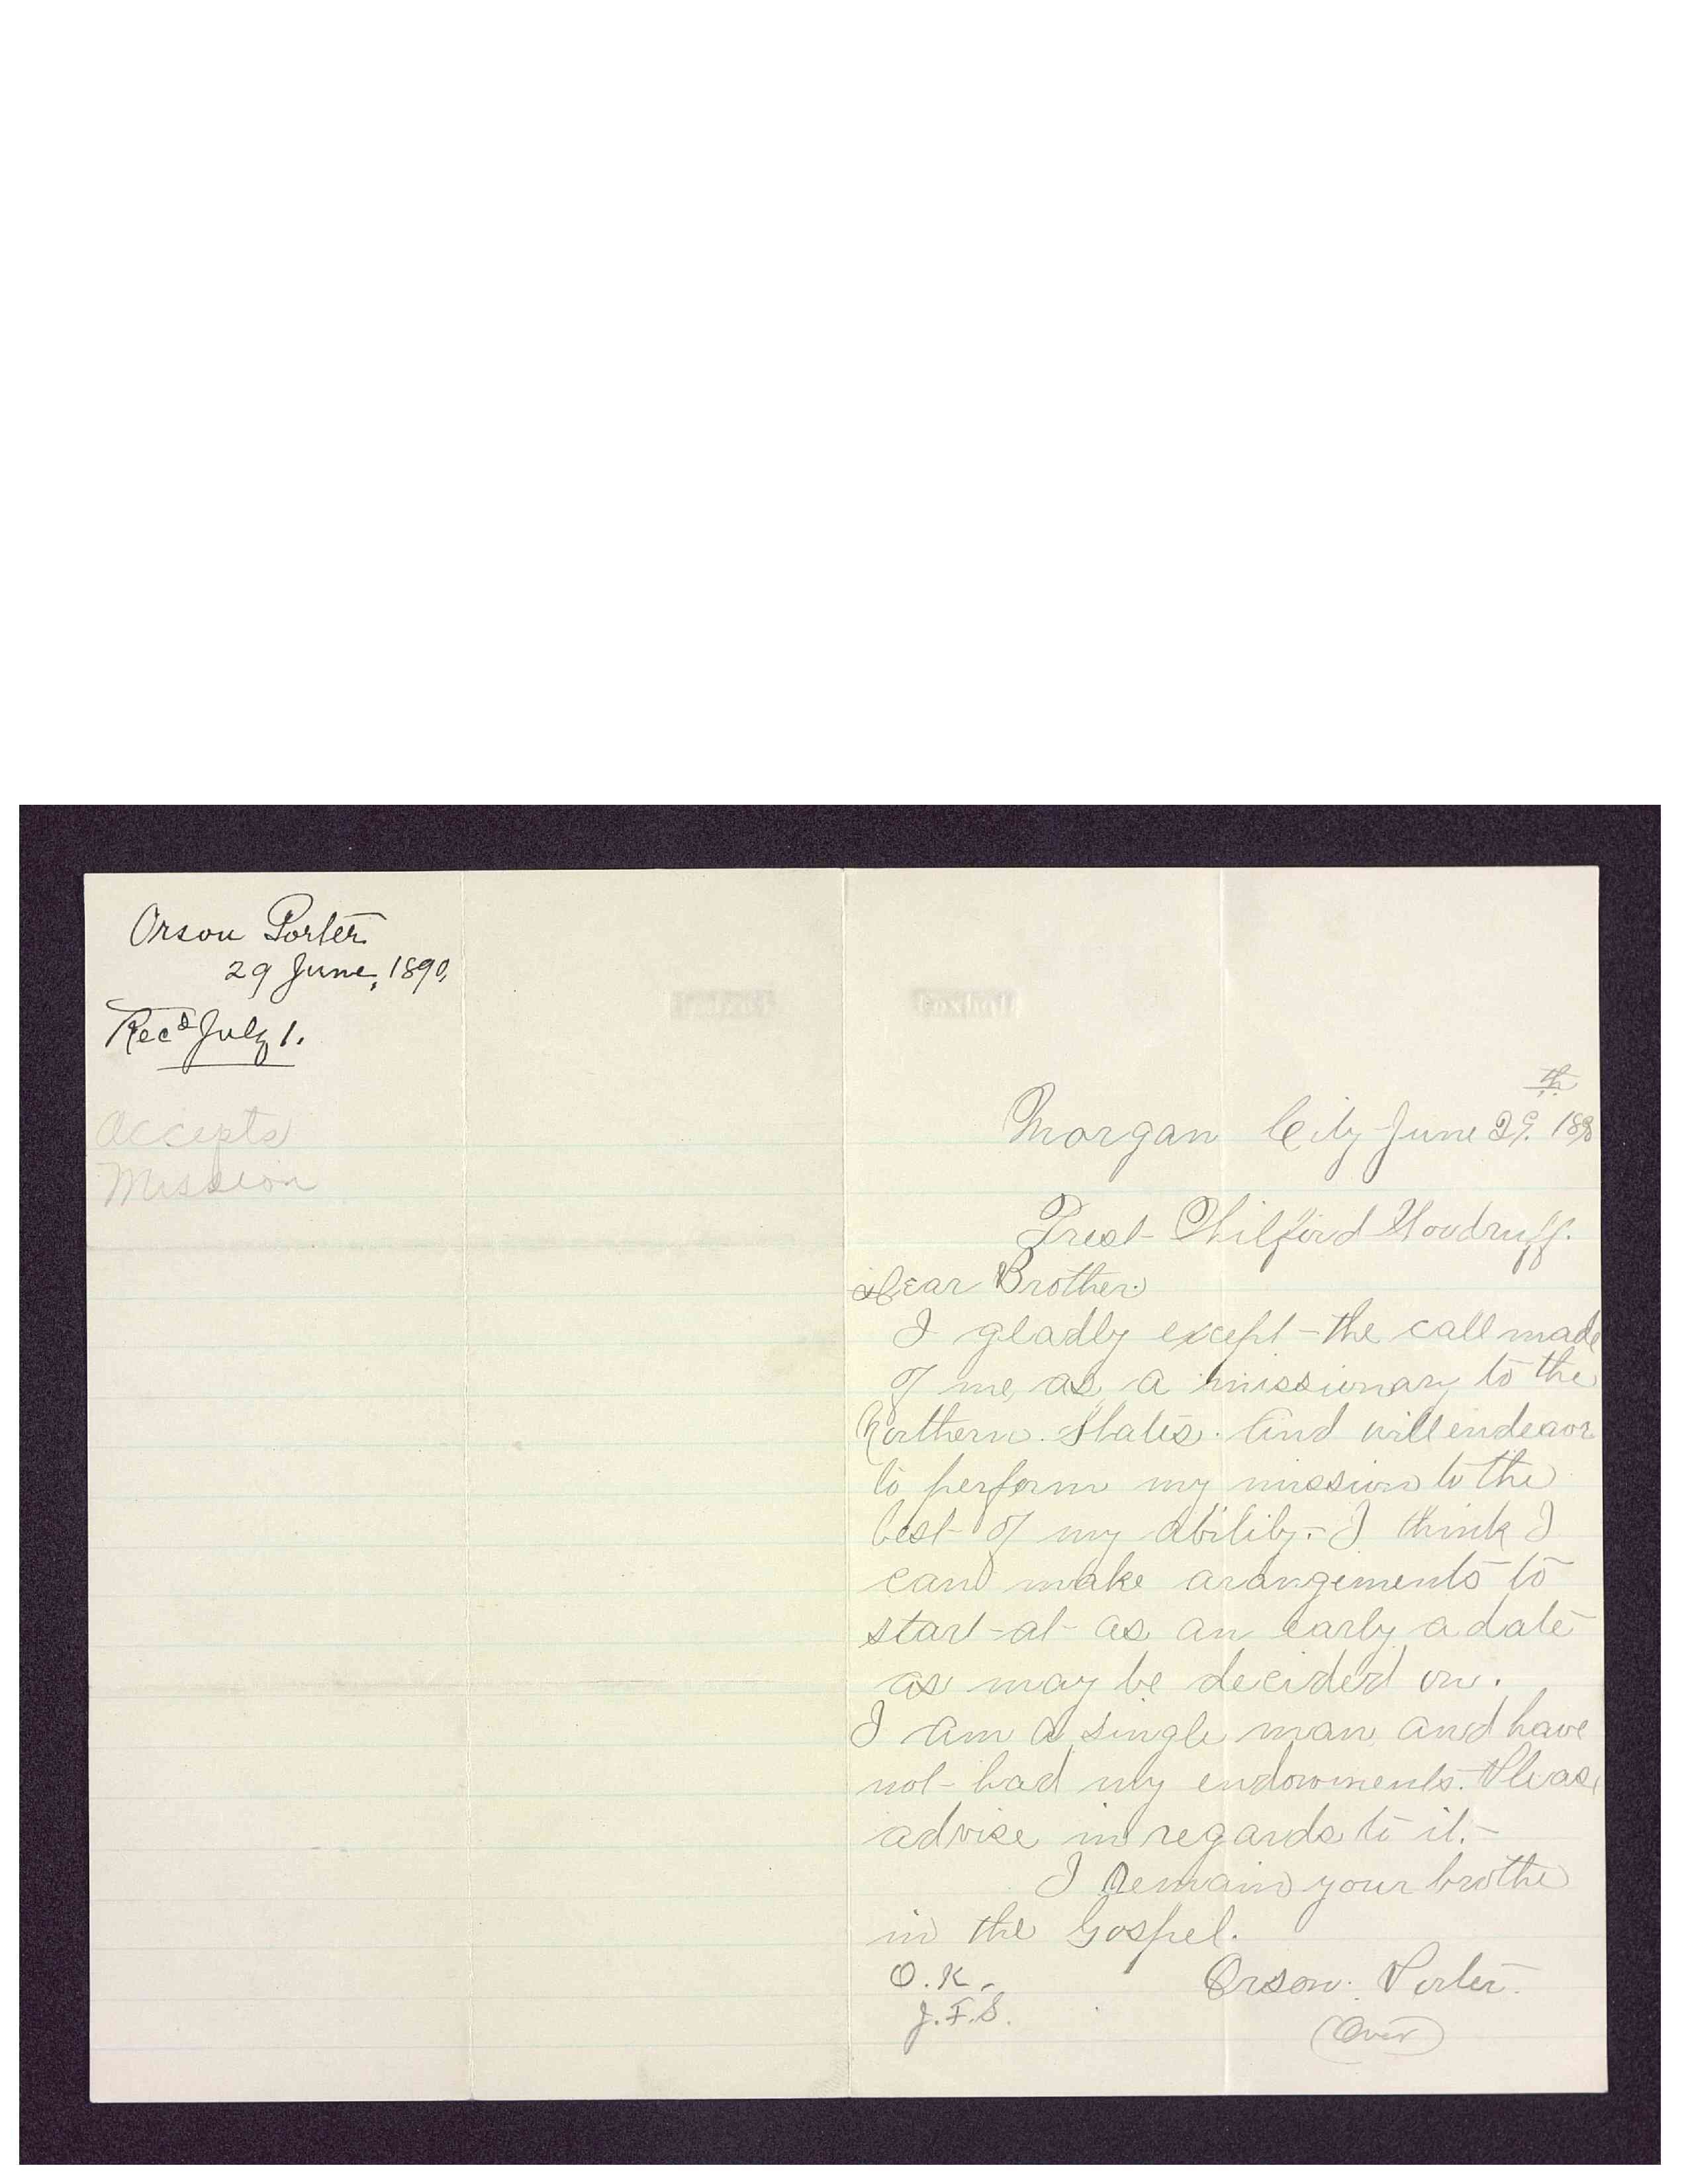 Orson Porter
29 June, 1890,
Recd July 1.
Accepts
Mission
th
Morgan City June 29. 1890
Prest Wilford Woodruff.
Dear Brother.
I gladly except the call made
of me, as a missionary to the
Northern States. And will endeavor
to perform my mission to the
best of my ability. I think I
can make arangements to
start at as an early a date
as may be decided on.
I am a single man and have
not had my endowments. Please
advise in regards to it.
I remain your brothe
in the Gospel.
Orson. Porter.
O.K.
J.F.S.
(Over)